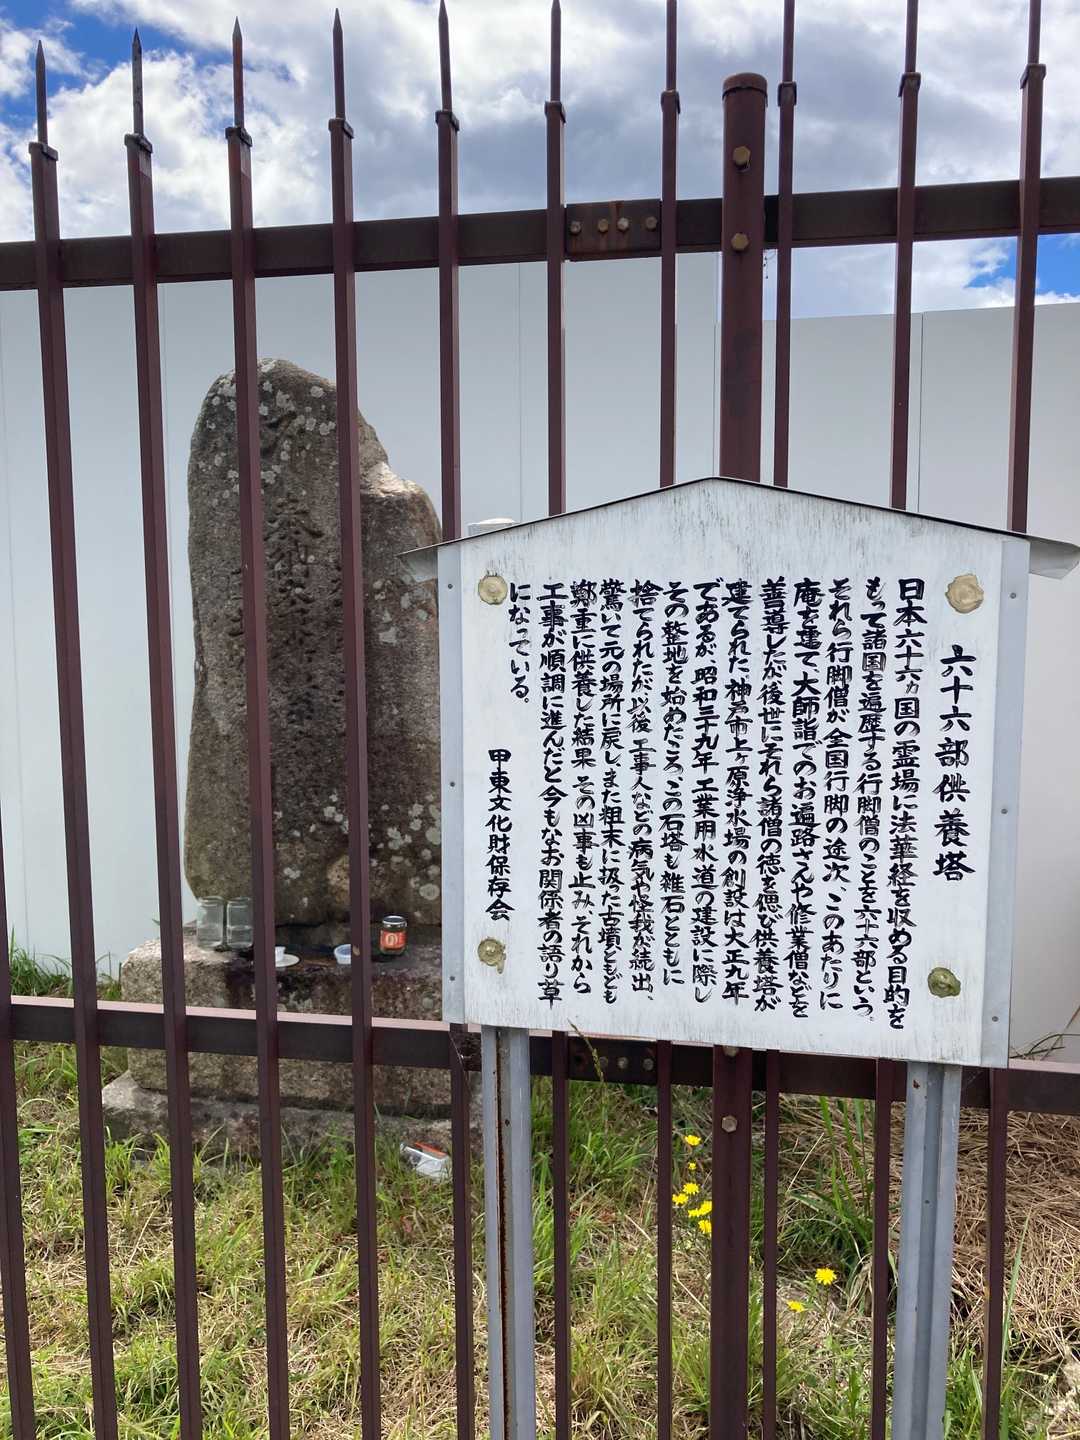 六十六部供養塔
日本六十六ヵ国の霊場に法華経を収める目的を
もって諸国を遍歴する行脚僧のことを六十六部という。
それら行脚僧が全国行脚の途次、このあたりに
庵を建て、大師詣でのお遍路さんや修業僧などを
善導したが後世にそれら諸僧の徳を偲び供養塔が
建てられた。神戸市上ヶ原浄水場の創設は大正九年
であるが、昭和三十九年工業用水道の建設に際し
その整地を始めたころ、この石塔も雑石とともに
捨てられたが、以後工事人などの病気や怪我が続出、
驚いて元の場所に戻し、また粗末に扱った古墳ともども
鄭重に供養した結果、その凶事も止み、それから
工事が順調に進んだと今もなお関係者の語り草
になっている。
甲東文化財保存会